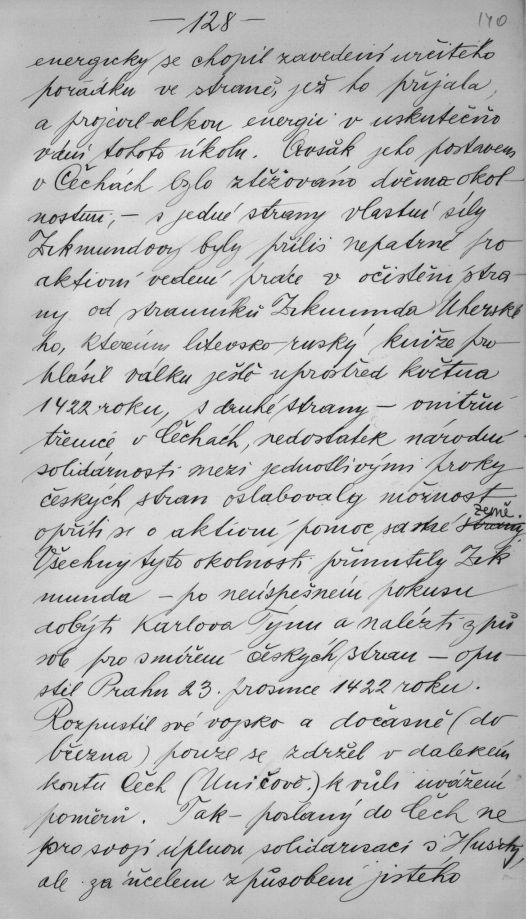 — 128 —
140
energicky se chopil zavedení určitého
pořádku ve straně, jež ho přijala,
a projevil velkou energii v uskutečňo
vání tohoto úkolu. Avšak jeho postavení
v Čechách bylo ztěžováno dvěma okol-
nostmi; – s jedné strany vlastní síly
Zikmundovy byly příliš nepatrné pro
aktivní vedení práce v očistění stra-
ny od stranníků Zikmunda Uherské
ho, kterému litevsko-ruský kníže pro-
hlásil válku ještě uprostřed května
1422 roku, s druhé strany – vnitřní
třenice v Čechách, nedostatek národní
solidárnosti mezi jednotlivými prvky
českých stran oslabovaly možnost
opříti se o aktivní pomoc samé země.
strany.
Všechny tyto okolnosti přinutily Zik
munda – po neúspěšném pokusu
dobýti Karlova Týnu a nalézti způ
sob pro smíření českých stran – opu-
stil Prahu 23. prosince 1422 roku.
Rozpustil své vojsko a dočasně (do
března) pouze se zdržel v dalekém
koutu Čech (Uničově.) k vůli uvážení
poměrů. Tak – poslaný do Čech ne
pro svoji úplnou solidarisaci s Husity,
ale za účelem způsobení jistého